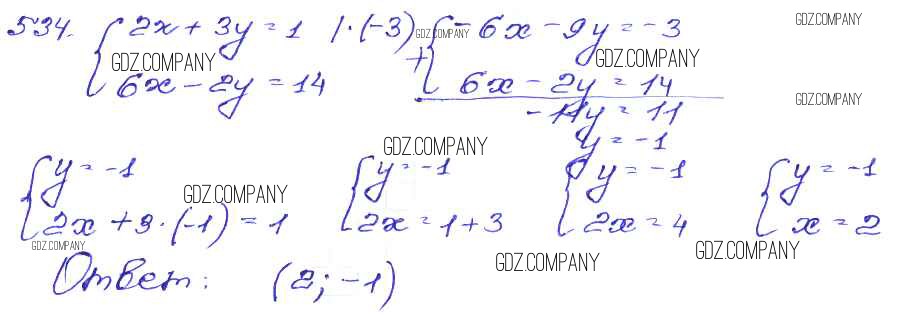 534. { 2x + 3y = 1 | · (-3) + { -6x - 9y = -3
6x - 2y = 14 6x - 2y = 14
-11y = 11
y = -1
{ y = -1 { y = -1 { y = -1 { y = -1
2x + 3 · (-1) = 1 2x = 1 + 3 2x = 4 x = 2
Ответ: (2; -1)
GDZ.COMPANY
GDZ.COMPANY
GDZ.COMPANY
GDZ.COMPANY
GDZ.COMPANY
GDZ.COMPANY
GDZ.COMPANY
GDZ.COMPANY
GDZ.COMPANY
GDZ.COMPANY